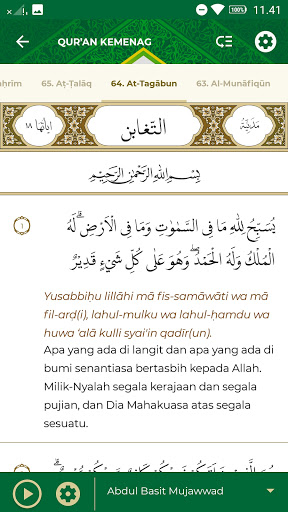 100% 11.41
QUR'AN KEMENAG
aḥrīm 65. Aṭ-Ṭalāq 64. At-Tagābun 63. Al-Munāfiqūn
مَدَنِيَّة التّغابن اٰياتها ١٨
بِسْمِ اللّٰهِ الرَّحْمٰنِ الرَّحِيْمِ
١
يُسَبِّحُ لِلّٰهِ مَا فِى السَّمٰوٰتِ وَمَا فِى الْاَرْضِۚ لَهُ
الْمُلْكُ وَلَهُ الْحَمْدُۖ وَهُوَ عَلٰى كُلِّ شَيْءٍ قَدِيْرٌ
Yusabbiḥu lillāhi mā fis-samāwāti wa mā
fil-arḍ(i), lahul-mulku wa lahul-ḥamdu wa
huwa ‘alā kulli syai'in qadīr(un).
Apa yang ada di langit dan apa yang ada di
bumi senantiasa bertasbih kepada Allah.
Milik-Nyalah segala kerajaan dan segala
pujian, dan Dia Mahakuasa atas segala
sesuatu.
Abdul Basit Mujawwad